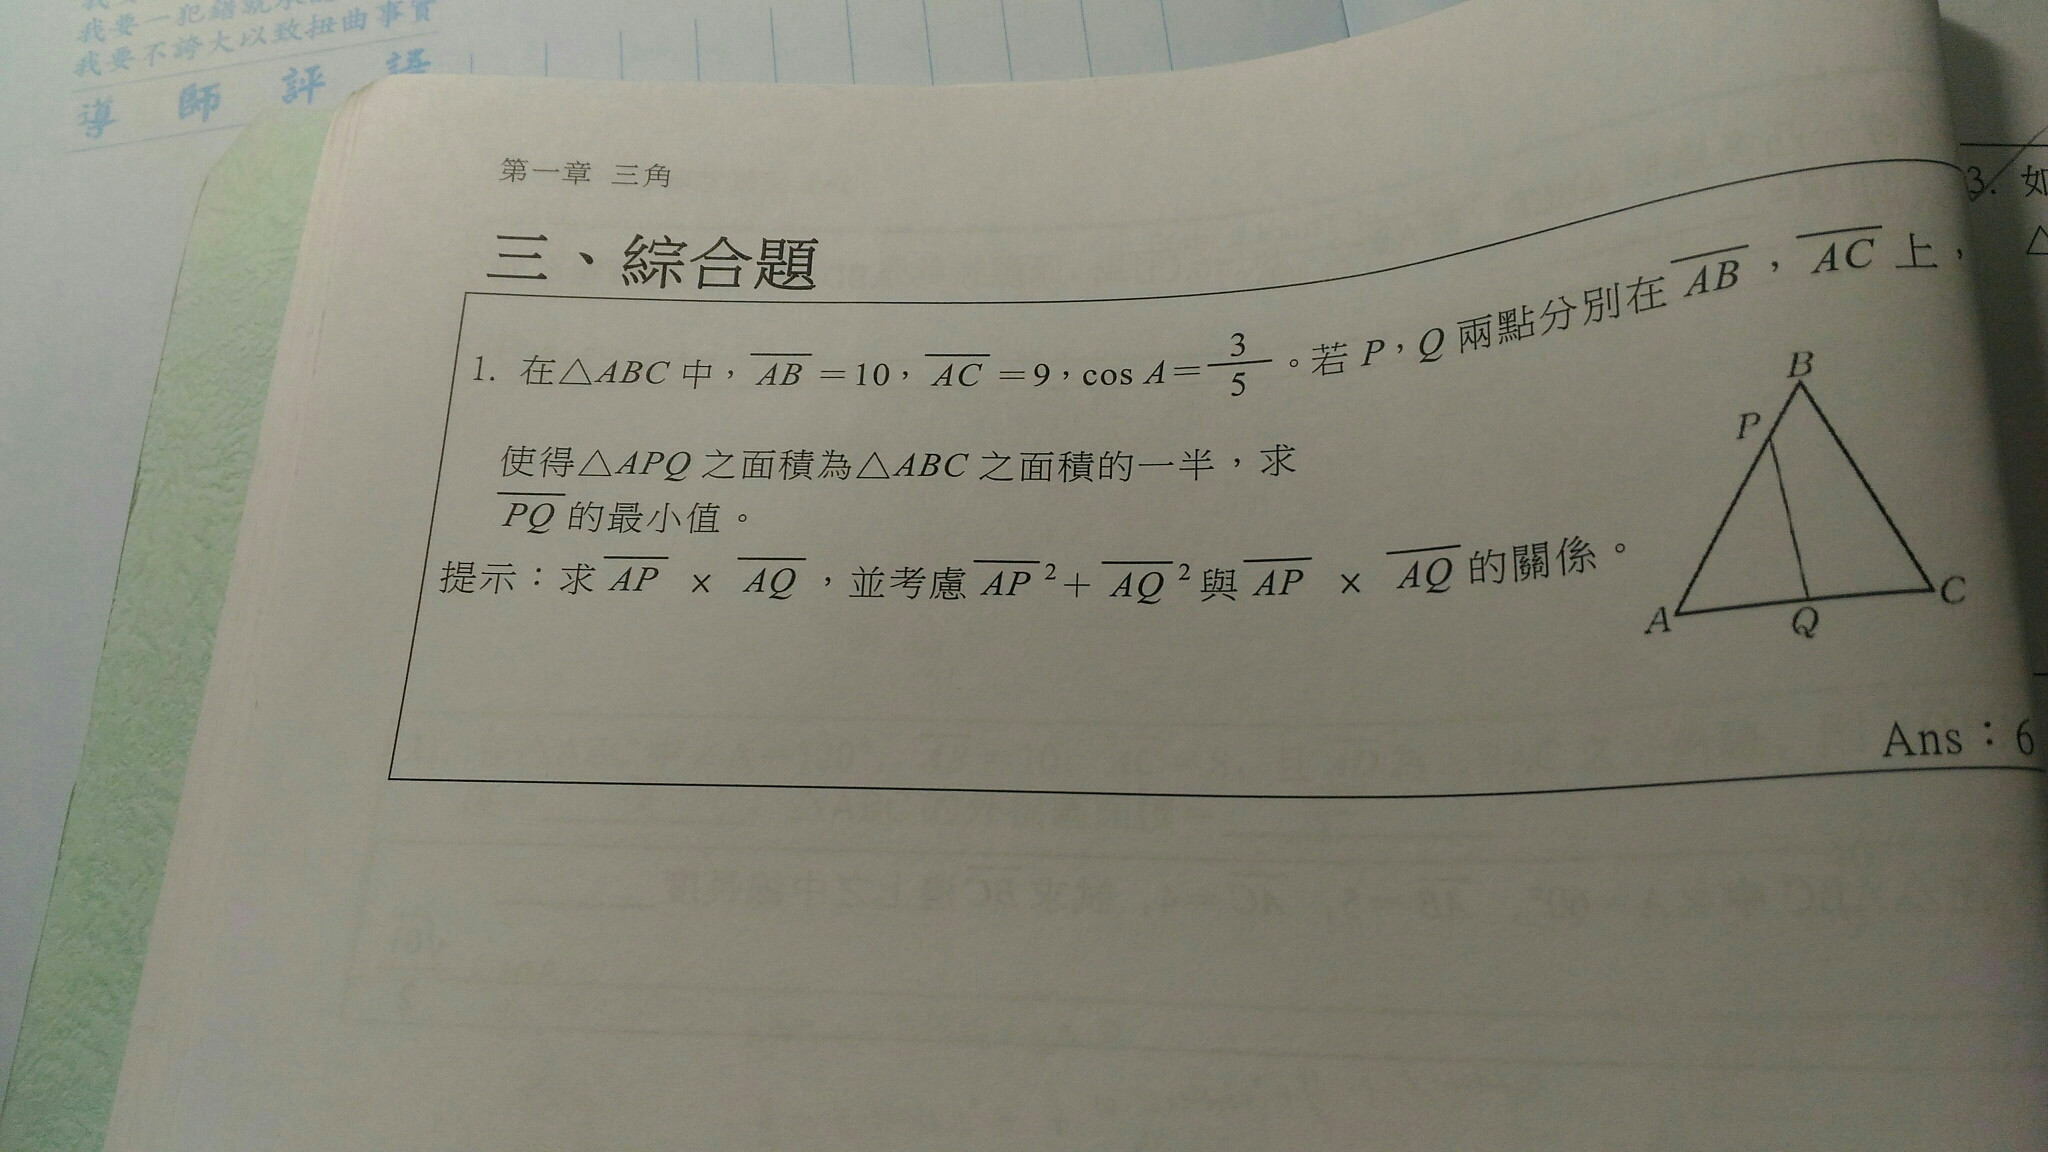 我要一犯錯就承認
我要不誇大以致扭曲事實
導師評語
第一章 三角
三、綜合題
1. 在△ABC中，AB=10，AC=9，cos A=3/5。若P，Q兩點分別在AB，AC上，
使得△APQ之面積為△ABC之面積的一半，求
PQ的最小值。
提示：求AP × AQ，並考慮AP²+AQ²與AP × AQ的關係。
B
P
A
Q
C
Ans：6
3. 如
△